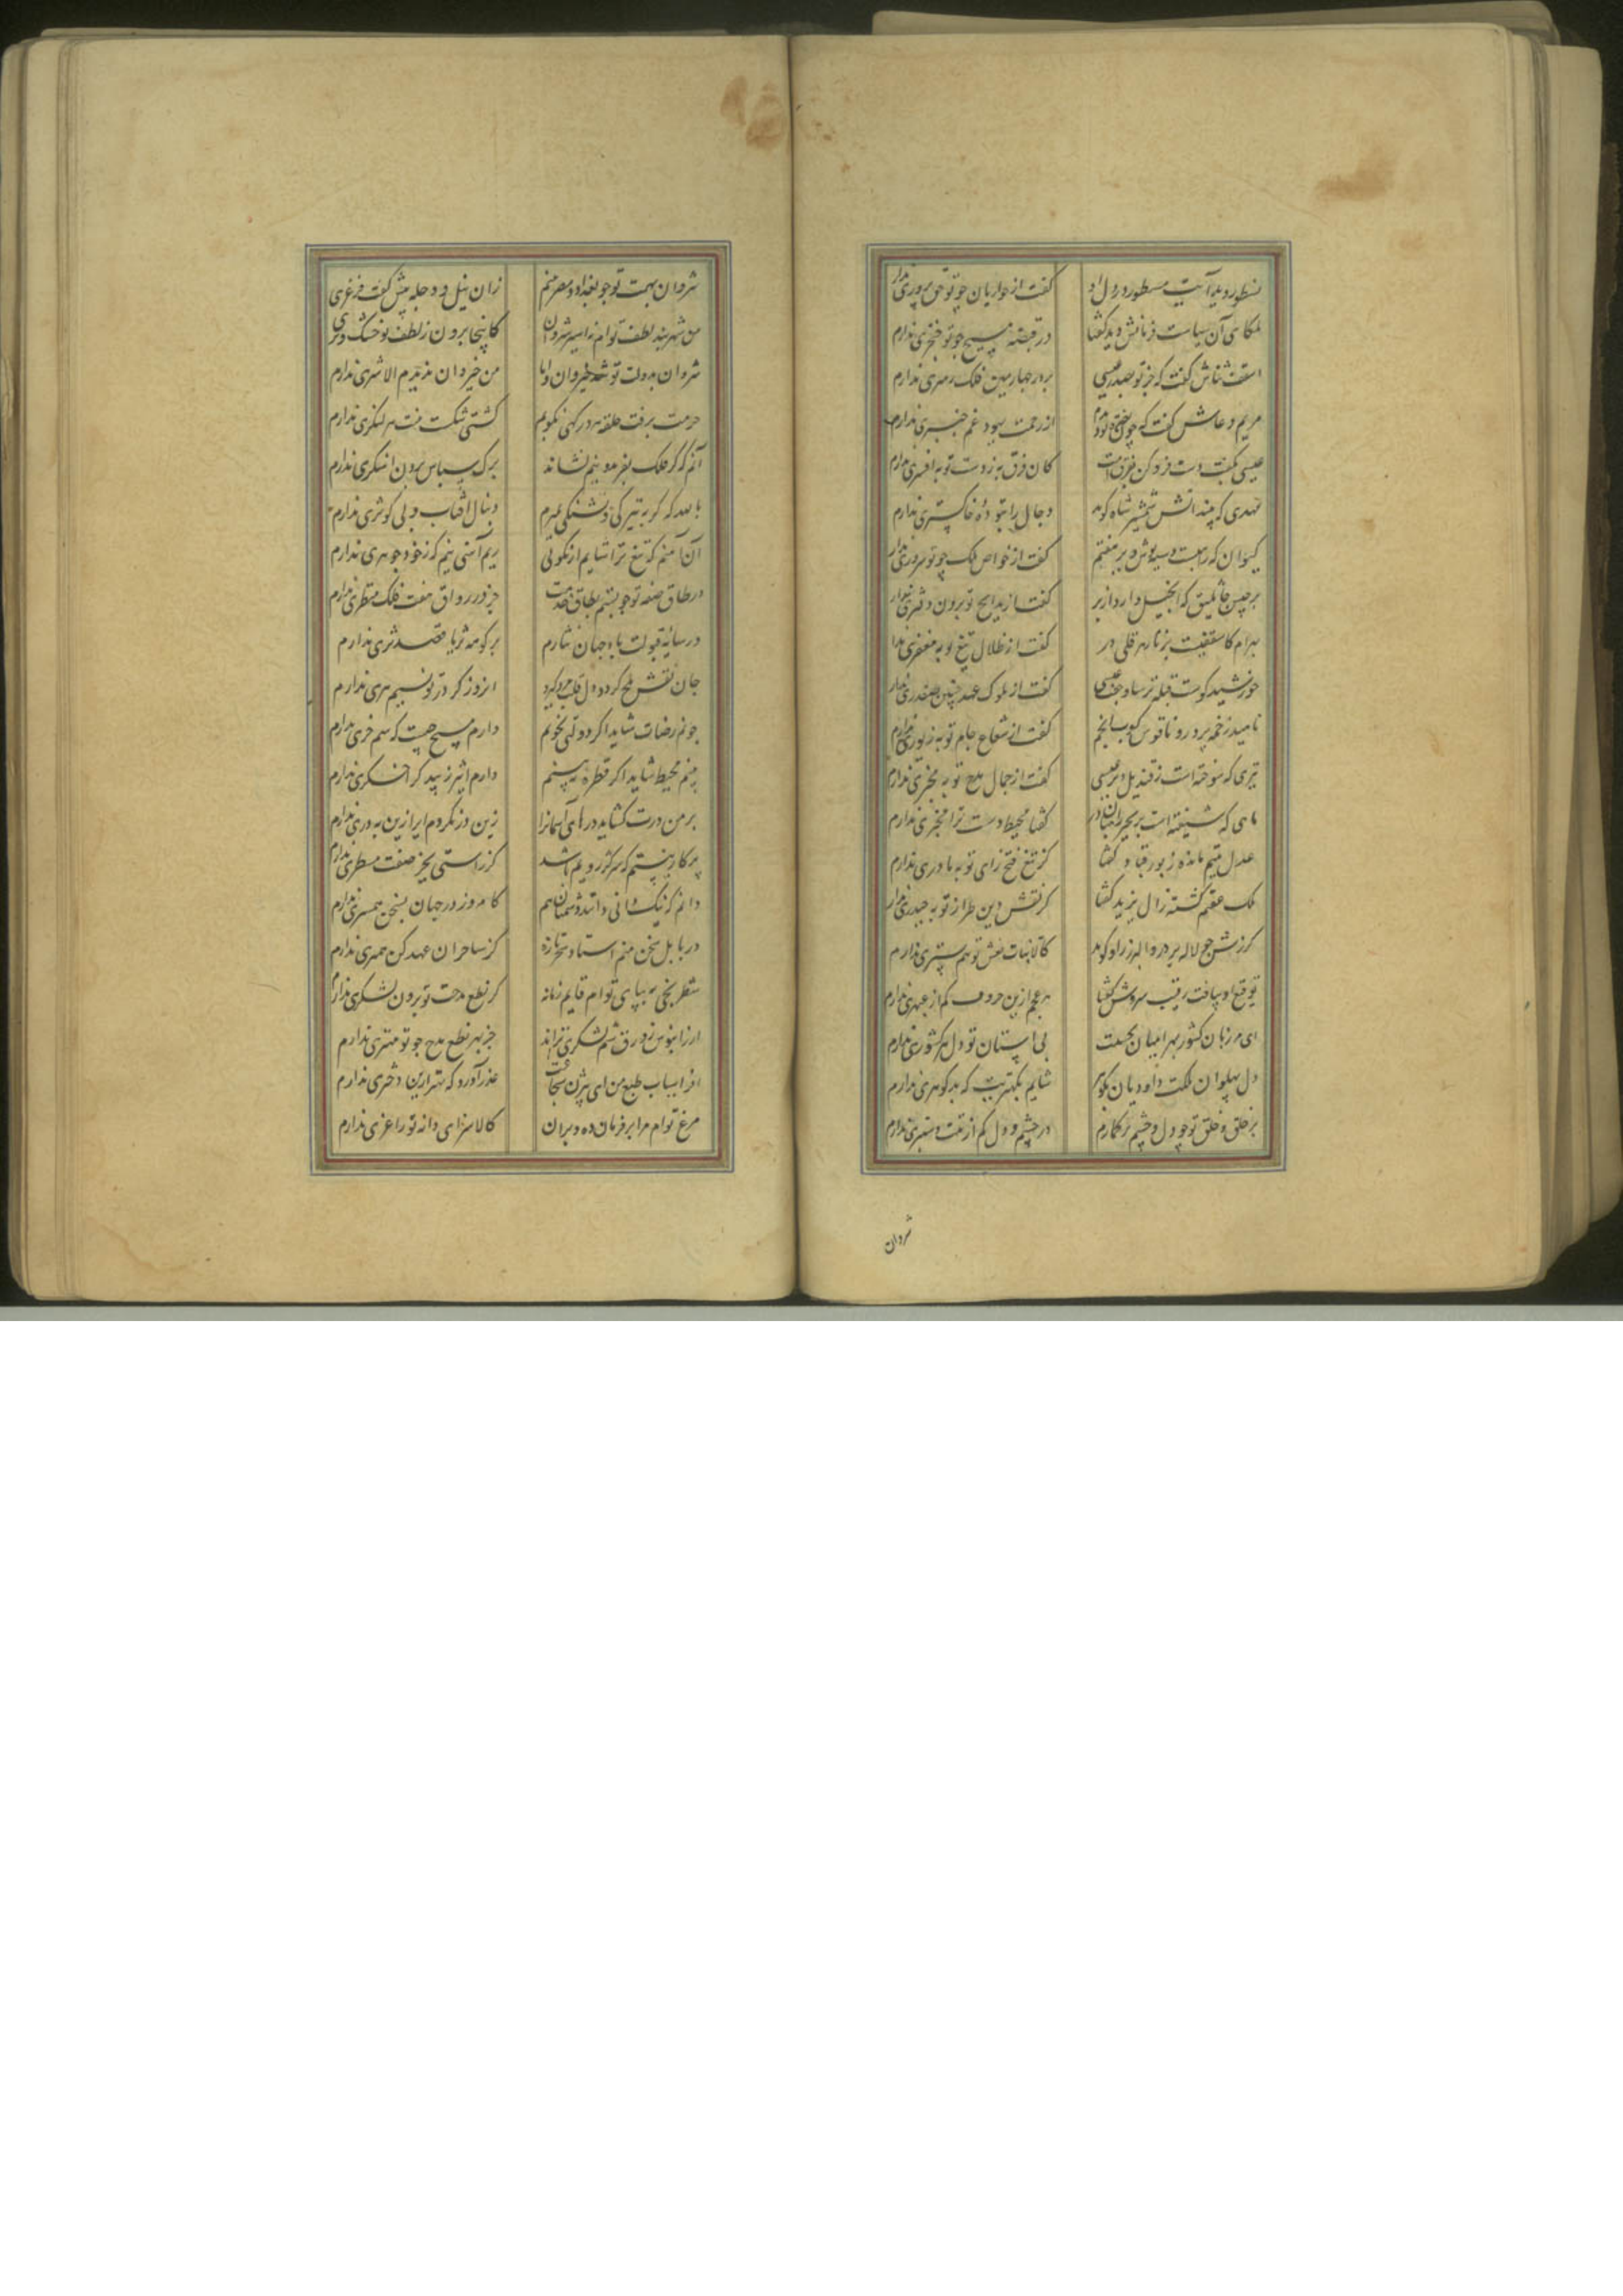 نسطور دید آیت مسطور در دل او
گفت از حواریان چو تو حق پروری ندارم
ملکای آن سیاست و فرمانش دید گفتا
در قبضه مسیح چو تو خنجری ندارم
اسقف ثناش گفت که جز تو بصدر عیسی
بر در چهارمین فلک رهبری ندارم
مریم دعاش گفت که چون
از رحمت یهود غم خیبری ندارم
عیسی بگفت دست فرو کن بفرق امت
کان فرق به ز دست تو به افسری ندارم
مهدی که بیند آتش شمشیر شاه گوید
دجال را بتوده خاکستری ندارم
کیوان که راهبیست سیه پوش دیر هفتم
گفت از خواص ملک چو تو سروری ندارم
برجیس جاثلیق که انجیل دارد از بر
گفت از مدایح تو برون دفتری ندارم
بهرام کاسقفیست بزنار هرقلی در
گفت از ظلال تیغ تو به مغفری ندارم
خورشید کوست قبله ترسا و جفت عیسی
گفت از ملوک عهد چنین صفدری ندارم
ناهید زخمه پرور و ناقوس کوب انجم
گفت از شعاع جام تو به زیوری ندارم
تیری که سوخته است ز قندیل دیر عیسی
گفت از جمال مدح تو به مخبری ندارم
ماهی که شیفته است بزنجیر راهبان در
گفتا محیط دست ترا معبری ندارم
عدل یتیم مانده ز پور قباد گفتا
کز تیغ فتح زای تو به مادری ندارم
ملک عقیم گشته ز آل یزید گفتا
کز نقش دین طراز تو به حیدری ندارم
گرزش چو لاله بر در و البرز را و گوید
کالا نبات نعش تو هم بستری ندارم
توقیع او بیافت رقیب سروش گفتا
به معجز ازین حروف کم از عبهری ندارم
ای مرزبان کشور بهرامیان بحسبت
بی آستان تو دل هر کشوری ندارم
دل پهلوان ملکت داودیان بگوهر
شایم بکهتریت که بد گوهری ندارم
بر خلق و خلق تو چو دل و چشم برگمارم
در چشم و دل کم از تبت و ششتری ندارم
شروان
شروان بهمت تو چو بغداد و مصر بینم
زان نیل و دجله پیش کفت فرغری ندارم
من شهربند لطف توام نه اسیر شروان
کاینجا برون ز لطف تو خشک و تری ندارم
شروان بدولت تو شد خیروان و اما
من خیروان ندیدم الا شری ندارم
حرمت برفت حلقه هر درگهی نکوبم
کشتی شکست منت هر لنگری ندارم
آنم که گر فلک بفریدونیم نشاند
برگ سپاس بردن آهنگری ندارم
بالله که گر به تیرگی و تشنگی بمیرم
دنبال آفتاب و لب کوثری ندارم
آن آهنم که تیغ ترا شایم از نکوئی
ریم آهنی نیم که ز خود جوهری ندارم
در طاق صفه تو چو بستم نطاق خدمت
جز در رواق هفت فلک منظری ندارم
در سایه قبولت با دو جهان نثارم
بر کوهه ثریا قصد ثری ندارم
جان نقش بلخ گردد دل قلب مرو گیرد
آن روز کز در تو نسیم هری ندارم
چونم رضات شاید اگر دولتی نخواهم
دارم مسیح چیست که سم خری ندارم
بینم محیط شاید اگر قطره نبینم
دارم اثیر زیبد کر اخگری ندارم
بر من درت گشاید درهای آسمان را
زین در نگردم ایرا زین به دری ندارم
پرگار نیستم که سر کژرویم باشد
کز راستی بجز صفت مسطری ندارم
دانم که نیک دانی دانند دشمنان هم
کامروز در جهان بسخن همسری ندارم
در بابل سخن منم استاد سحر تازه
کز ساحران عهد کهن همبری ندارم
شطرنجیی به پای توام قایم زمانه
کز نطع مدحت تو برون لشکری ندارم
ار ز آبنوس روز و شبم لشکری تراند
جز بهر نطع مدح چو تو مهتری ندارم
افراسیاب طبع من ای بیژن شجاعت
عذر آورد که بهتر ازین دختری ندارم
مرغ توام مرا پر فرمان ده و بپران
کالا سزای دانه تو ژاغری ندارم